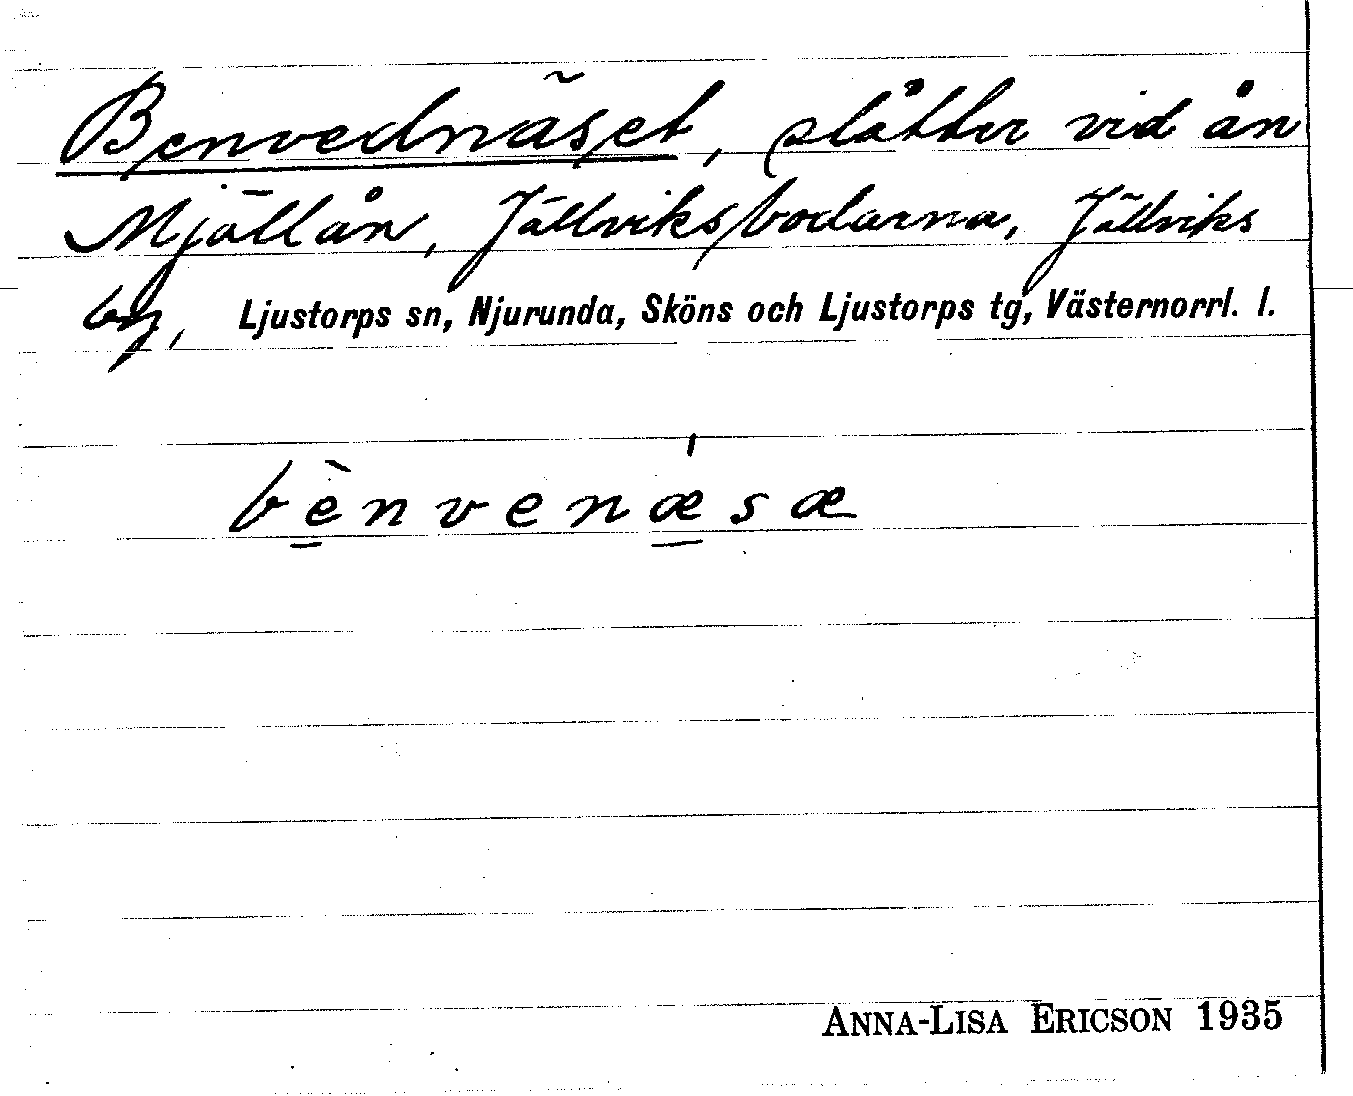 Benvednäset, slåtter vid ån
Mjällån, Jällviksbodarna, Jällviks
by, Ljustorps sn, Njurunda, Sköns och Ljustorps tg, Västernorrl. l.
bènvenǽsæ
ANNA-LISA ERICSON 1935